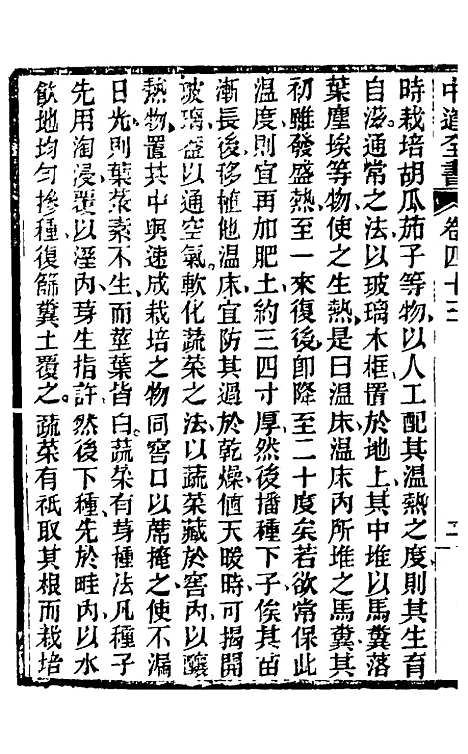 中道全書 卷四十三
時栽培胡瓜茄子等物以人工配其温熱之度則其生育
自滋通常之法以玻璃木框置於地上其中堆以馬糞落
葉塵埃等物使之生熱是曰温床温床内所堆之馬糞其
初雖發盛熱至一來復後卽降至二十度矣若欲常保此
温度則宜再加肥土約三四寸厚然後播種下子俟其苗
漸長後移植他温床宜防其過於乾燥値天暖時可揭開
玻璃益以通空氣軟化蔬菜之法以蔬菜藏於窖内以釀
熱物置其中與速成栽培之物同窖口以蓆掩之使不漏
日光則葉菉素不生而莖葉皆白蔬菜有芽種法凡種子
先用淘浸覆以溼内芽生指許然後下種先於畦内以水
飲地均勻摻種復篩糞土覆之蔬菜有祇取其根而栽培